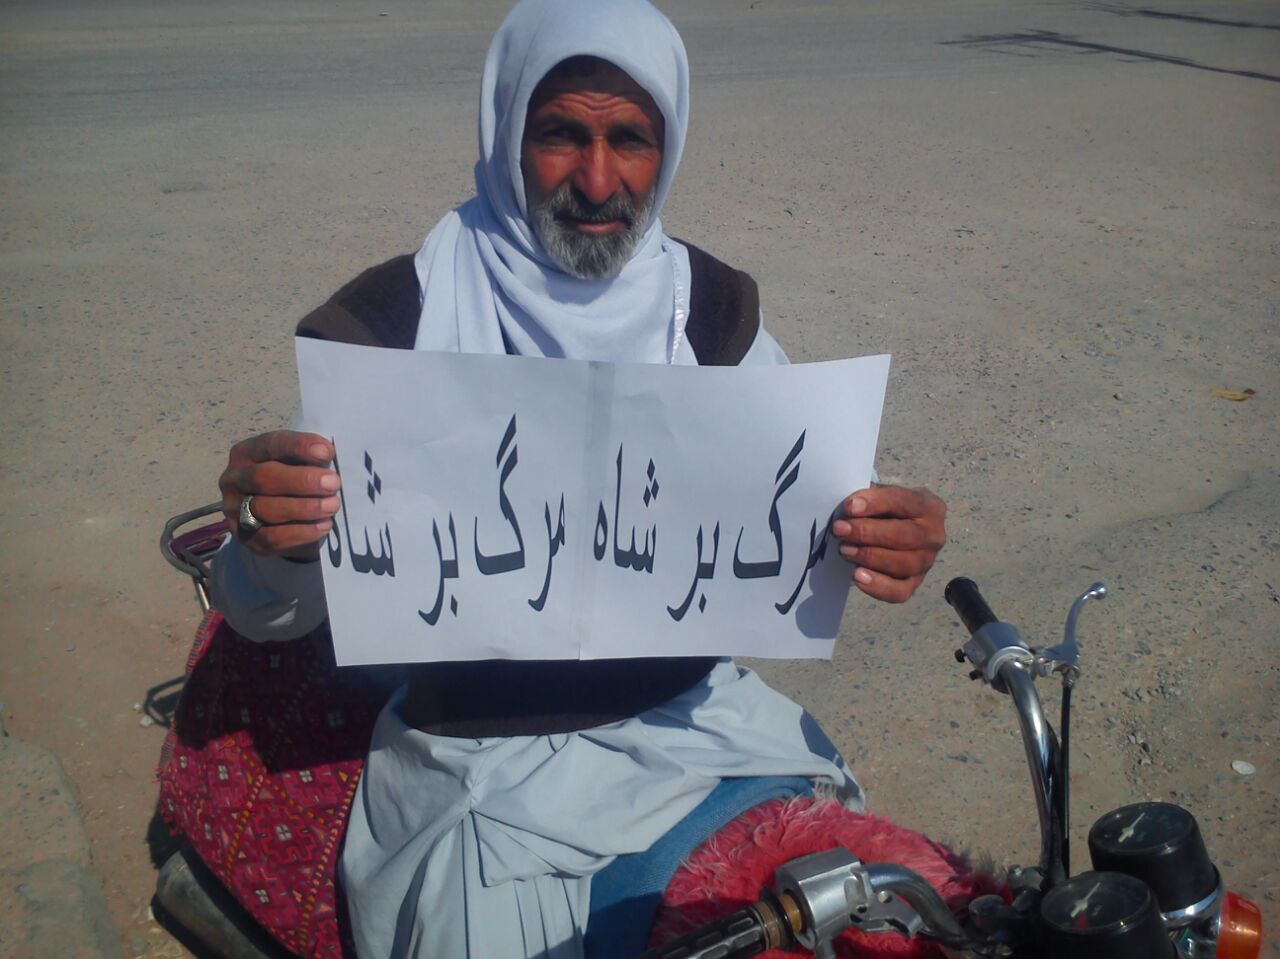 مرگ بر شاه مرگ بر شاه